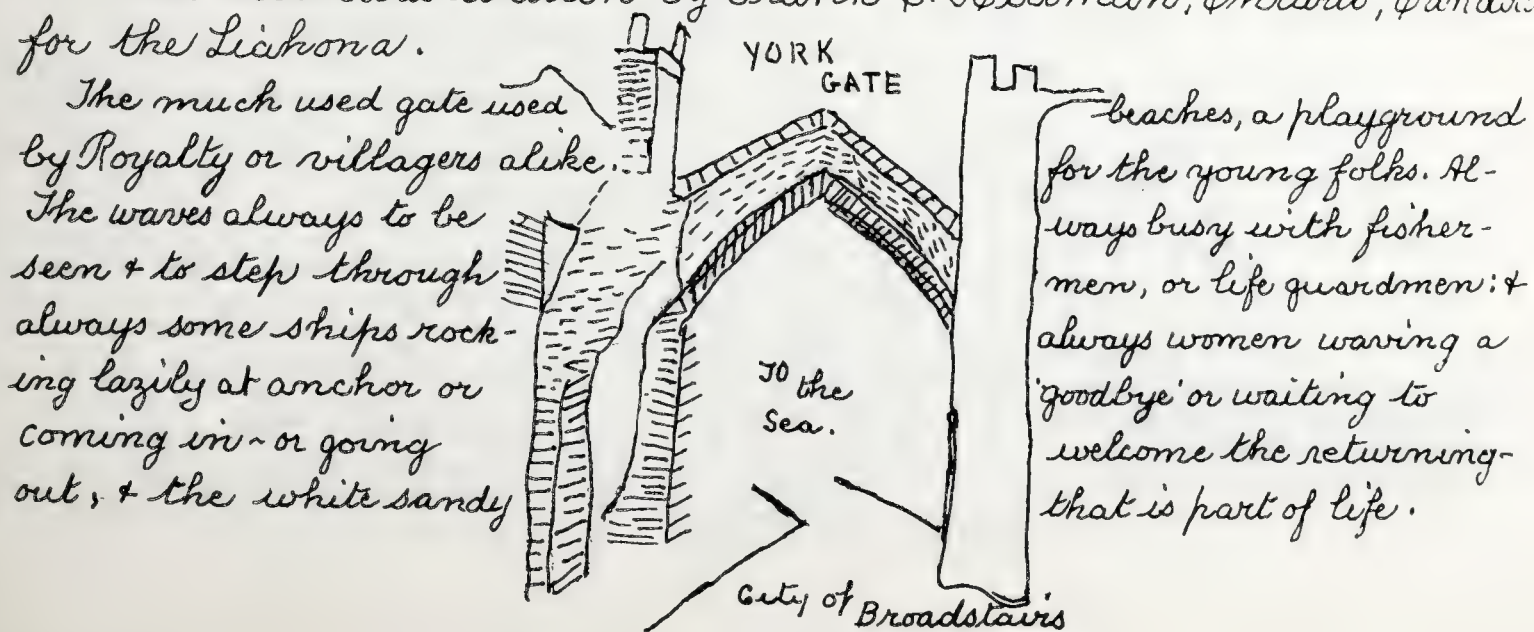 by Frank
for the Liahona.
The much used gate used
by Royalty or villagers alike.
The waves always to be
seen & to step through
always some ships rock-
ing lazily at anchor or
coming in ~ or going
out, & the white sandy
YORK
GATE
TO the
Sea.
City of Broadstairs
beaches, a playground
for the young folks. Al-
ways busy with fisher-
men, or life guardmen: &
always women waving a
'goodbye' or waiting to
welcome the returning-
that is part of life.